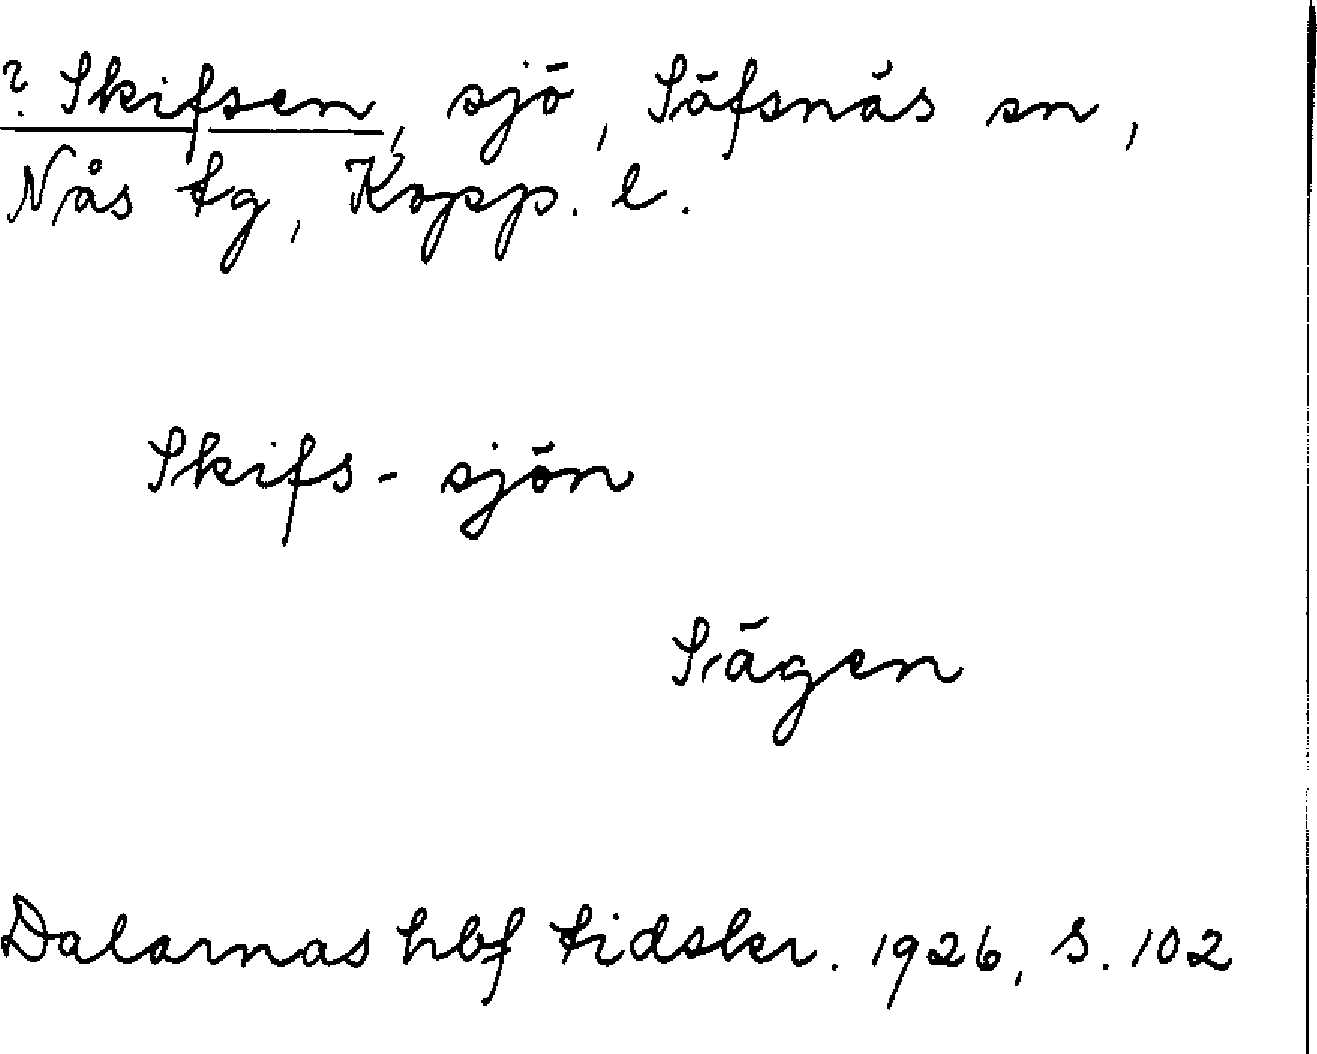 ? Skifsen, sjö, Säfsnäs sn,
Nås tg, Kopp. l.
Skifs-sjön
Sägen
Dalarnas hbf tidskr. 1926, s. 102